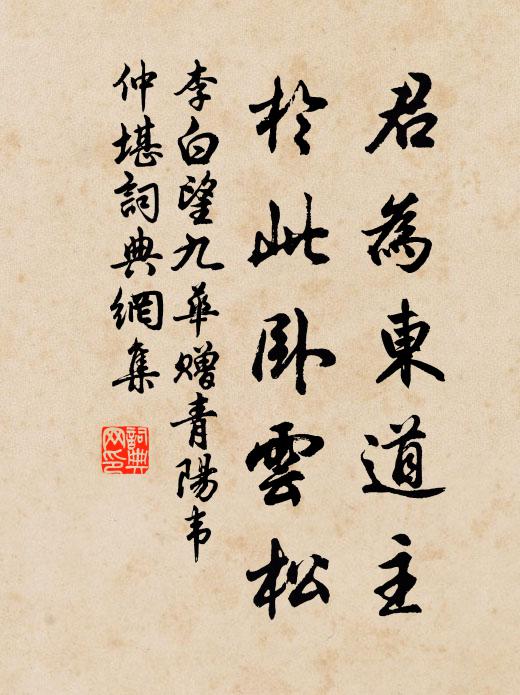 君為東道主
於此臥雲松
李白望九華贈青陽韦
仲堪詞典網集
詞典
网印